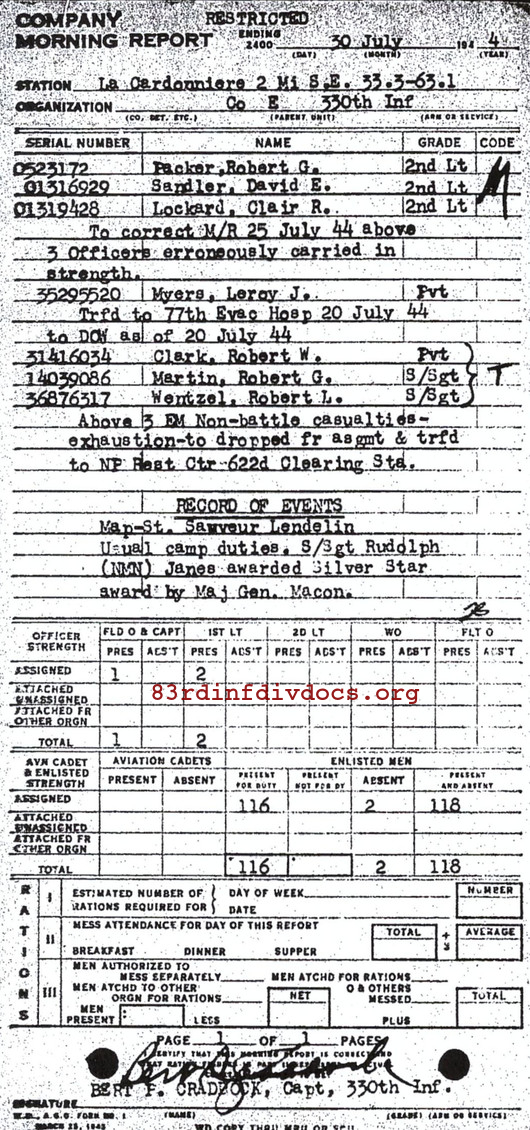 COMPANY
MORNING REPORT
RESTRICTED
ENDING 2400 30 July 194 4
(DAY) (MONTH) (YEAR)
STATION La Cardonniere 2 Mi S.E. 33.3-63.1
ORGANIZATION Co E 330th Inf
(CO, DET, ETC.) (PARENT UNIT) (ARM OR SERVICE)
SERIAL NUMBER NAME GRADE CODE
0523172 Packer, Robert G. 2nd Lt
01316929 Sandler, David E. 2nd Lt M
01319428 Lockard, Clair R. 2nd Lt
To correct M/R 25 July 44 above
3 Officers erroneously carried in
strength.
35295520 Myers, Leroy J. Pvt
Trfd to 77th Evac Hosp 20 July 44
to DOW as of 20 July 44
31416034 Clark, Robert W. Pvt
14039086 Martin, Robert G. S/Sgt T
36876317 Wentzel, Robert L. S/Sgt
Above 3 EM Non-battle casualties-
exhaustion-to dropped fr asgmt & trfd
to NP Rest Ctr-622d Clearing Sta.
RECORD OF EVENTS
Map-St. Sauveur Lendelin
Usual camp duties. S/Sgt Rudolph
(NMN) Janes awarded Silver Star
award by Maj Gen. Macon.
OFFICER STRENGTH FLD O & CAPT 1ST LT 2D LT WO FLT O
PRES ABS'T PRES ABS'T PRES ABS'T PRES ABS'T PRES ABS'T
ASSIGNED 1 2
ATTACHED UNASSIGNED
83rdinfdivdocs.org
ATTACHED FR OTHER ORGN
TOTAL 1 2
AVN CADET & ENLISTED STRENGTH AVIATION CADETS ENLISTED MEN
PRESENT ABSENT PRESENT FOR DUTY PRESENT NOT FOR DY ABSENT PRESENT AND ABSENT
ASSIGNED 116 2 118
ATTACHED UNASSIGNED
ATTACHED FR OTHER ORGN
TOTAL 116 2 118
RATIONS
I ESTIMATED NUMBER OF RATIONS REQUIRED FOR DAY OF WEEK DATE NUMBER
II MESS ATTENDANCE FOR DAY OF THIS REPORT TOTAL ÷ 3 AVERAGE
BREAKFAST DINNER SUPPER
III MEN AUTHORIZED TO MESS SEPARATELY MEN ATCHD FOR RATIONS
MEN ATCHD TO OTHER ORGN FOR RATIONS NET O & OTHERS MESSED TOTAL
MEN PRESENT LESS PLUS
PAGE 1 OF 1 PAGES
I CERTIFY THAT THIS MORNING REPORT IS CORRECT AND
BERT F. CRADDOCK, Capt, 330th Inf.
SIGNATURE
W.D., A.G.O. FORM NO. 1 (NAME) (GRADE) (ARM OR SERVICE)
MARCH 25, 1943 WD COPY THRU MRU OR SCU